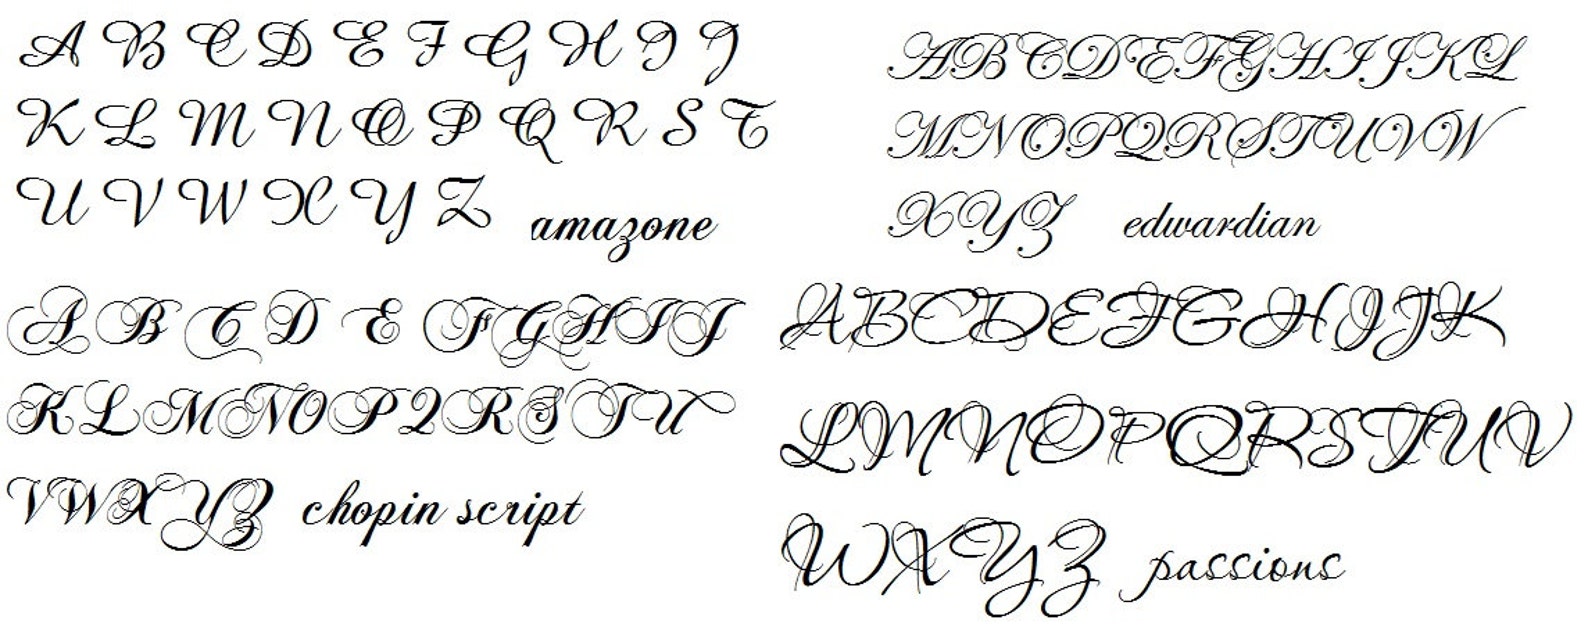 A B C D E F G H I J
K L M N O P Q R S T
U V W X Y Z amazone
ABCDEFGHIJKL
MNOPQRSTUVW
XYZ edwardian
A B C D E FGHIJ
KLMNOPQRSTU
VWXYZ chopin script
ABCDEFGHIJK
LMNOPQRSTUV
WXYZ passions